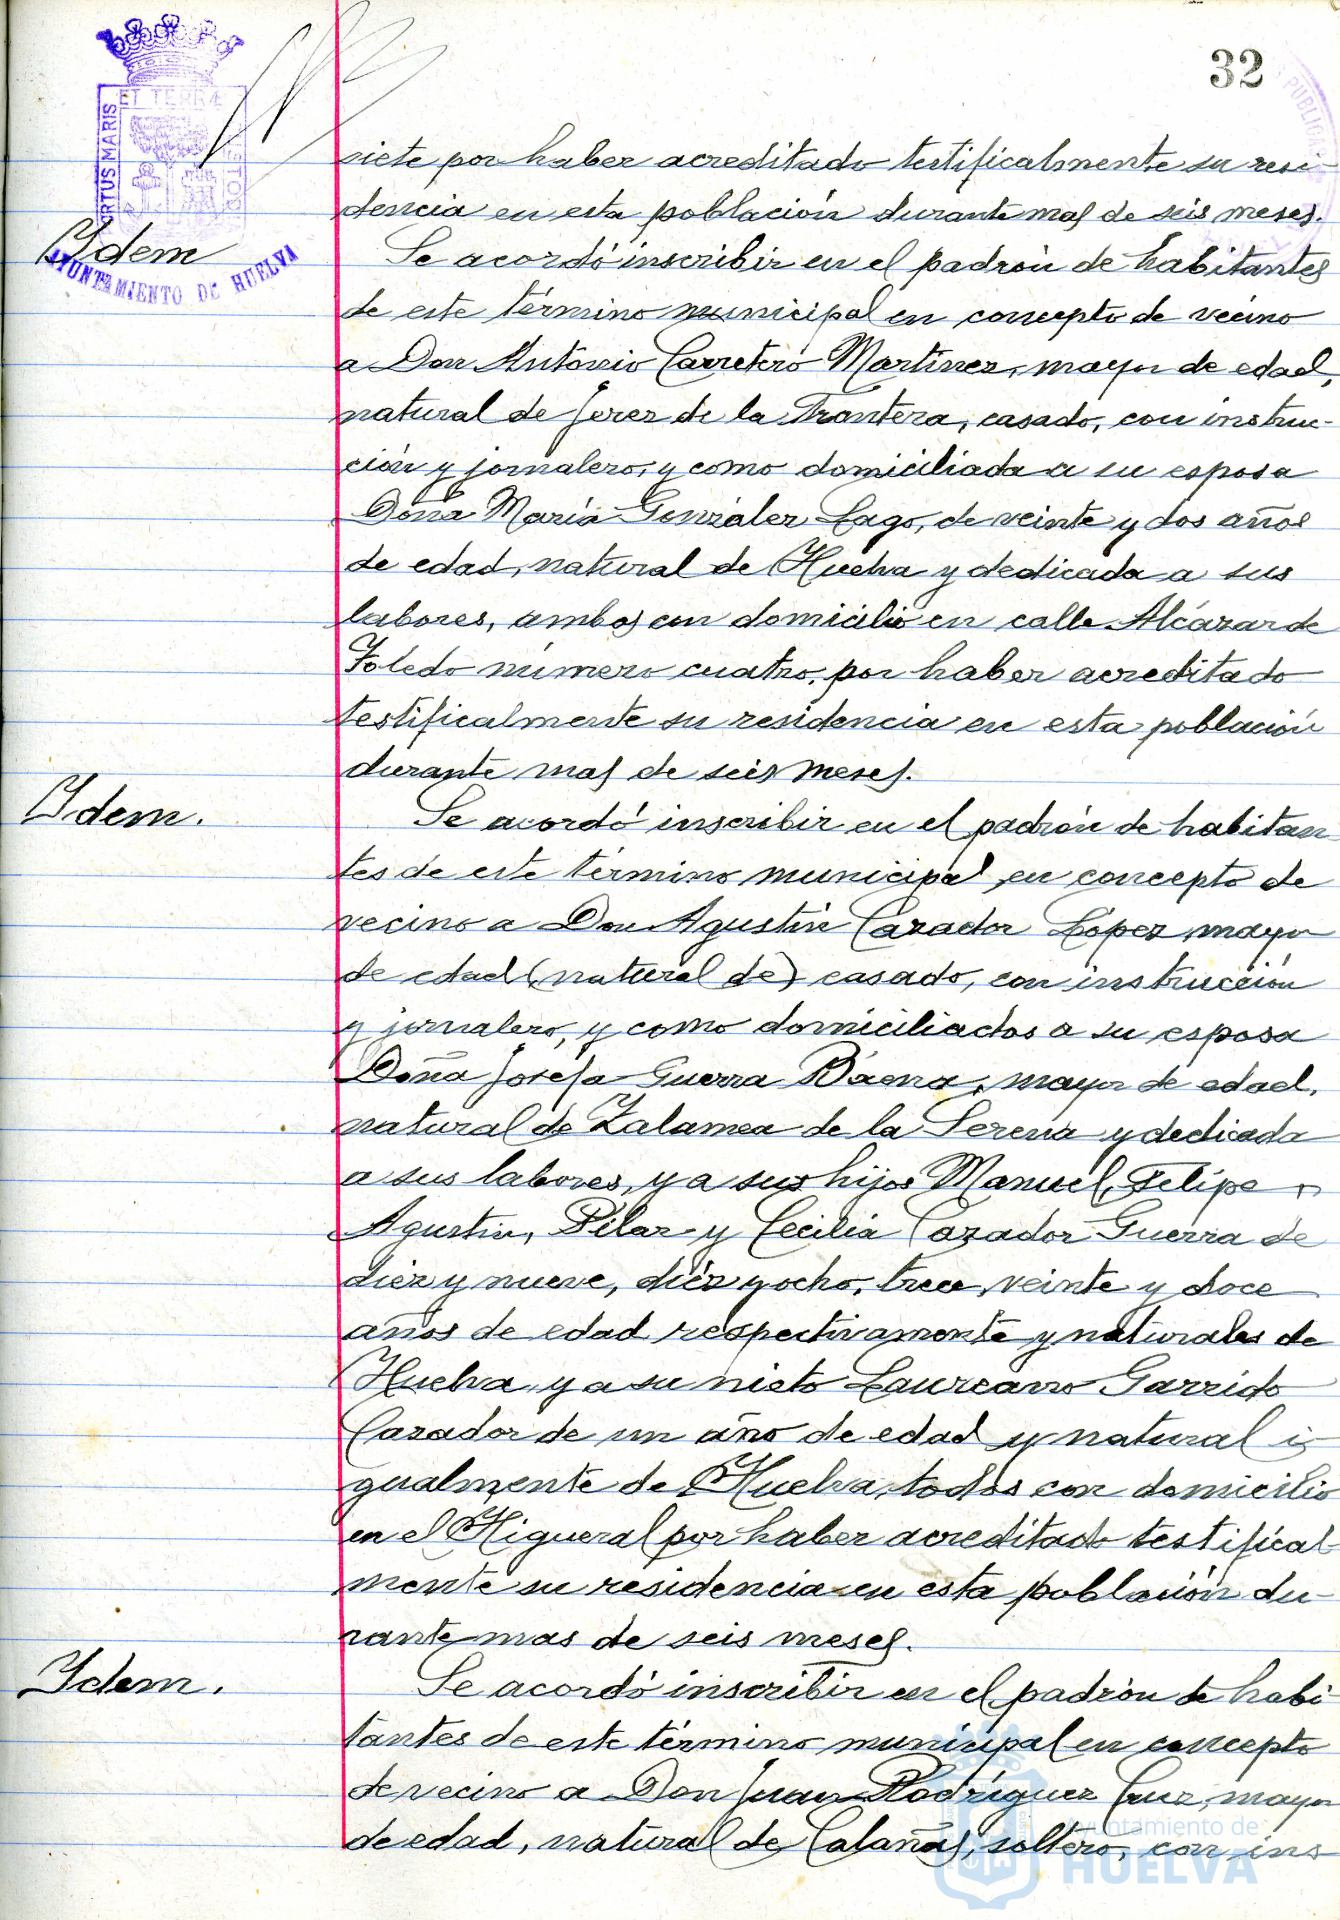 32
PORTUS MARIS
ET TERRÆ
CUSTODIA
AYUNTAMIENTO DE HUELVA
siete por haber acreditado testificalmente su resi-
dencia en esta población durante mas de seis meses.
Idem
Se acordó inscribir en el padrón de habitantes
de este término municipal en concepto de vecino
a Don Antonio Carretero Martínez, mayor de edad,
natural de Jerez de la Frontera, casado, con instruc-
ción y jornalero, y como domiciliada a su esposa
Doña María González Lago, de veinte y dos años
de edad, natural de Huelva y dedicada a sus
labores, ambos con domicilio en calle Alcázar de
Toledo número cuatro, por haber acreditado
testificalmente su residencia en esta población
durante mas de seis meses.
Idem.
Se acordó inscribir en el padrón de habitan-
tes de este término municipal en concepto de
vecino a Don Agustín Cazador López, mayor
de edad (natural de) casado, con instrucción
y jornalero, y como domiciliados a su esposa
Doña Josefa Guerra Báena, mayor de edad,
natural de Zalamea de la Serena y dedicada
a sus labores, y a sus hijos Manuel, Felipe,
Agustin, Pilar y Cecilia Cazador Guerra de
diez y nueve, diéz y ocho, trece, veinte y doce
años de edad respectivamente y naturales de
Huelva, y a su nieto Laureano Garrido
Cazador de un año de edad y natural i-
gualmente de Huelva, todos con domicilio
en el Higueral por haber acreditado testifical-
mente su residencia en esta población du-
rante mas de seis meses.
Idem.
Se acordó inscribir en el padrón de habi-
tantes de este término municipal en concepto
de vecino a Don Juan Rodríguez Cruz, mayor
de edad, natural de Calañas, soltero, con ins-
Ayuntamiento de
HUELVA